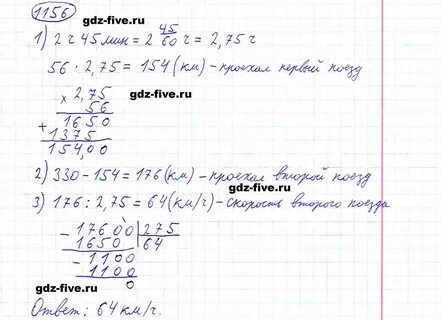 1156
gdz-five.ru
1) 2 ч 45 мин = 2 45/60 ч = 2,75 ч
gdz-five.ru
56 · 2,75 = 154 (км) - проехал первый поезд
gdz-five.ru
× 2,75
56
+ 1650
1375
154,00
gdz-five.ru
2) 330 - 154 = 176 (км) - проехал второй поезд
gdz-five.ru
3) 176 : 2,75 = 64 (км/ч) - скорость второго поезда
gdz-five.ru
- 17600 | 275
1650 | 64
- 1100
1100
0
gdz-five.ru
gdz-five.ru
Ответ: 64 км/ч.